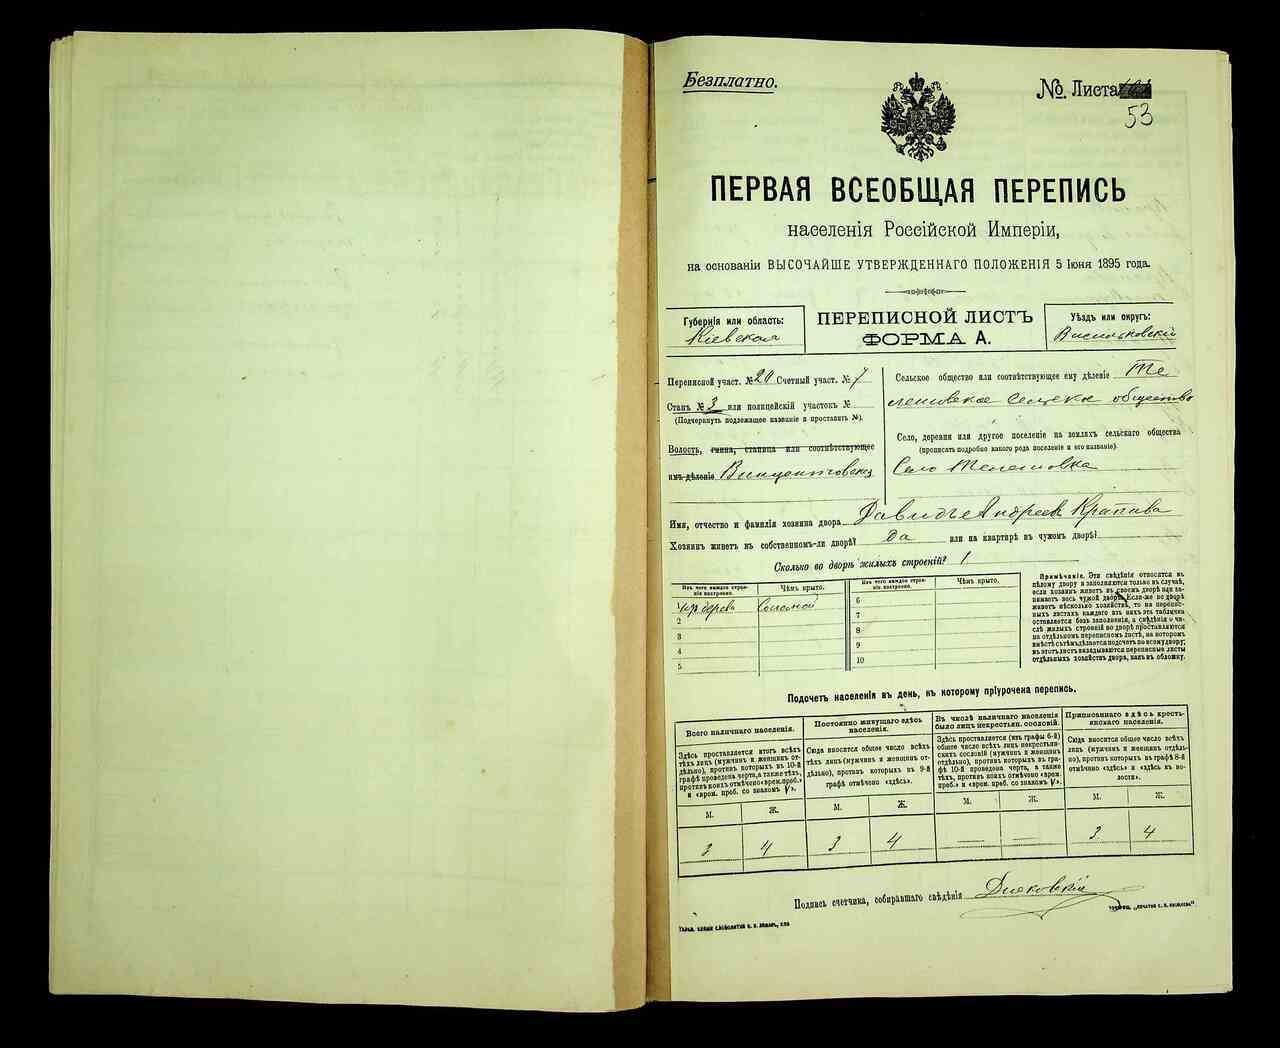 Безплатно.
№ Листа
53
ПЕРВАЯ ВСЕОБЩАЯ ПЕРЕПИСЬ
населенія Россійской Имперіи,
на основаніи ВЫСОЧАЙШЕ УТВЕРЖДЕННАГО ПОЛОЖЕНІЯ 5 Іюня 1895 года.
Губернія или область:
Кіевская
ПЕРЕПИСНОЙ ЛИСТЪ
ФОРМА А.
Уѣздъ или округъ:
Васильковскій
Переписной участ. № 20 Счетный участ. № 7
Станъ № 3 или полицейскій участокъ №
(Подчеркнуть подлежащее названіе и проставить №).
Волость, гмина, станица или соотвѣтствующее
имъ дѣленіе Винцентовская
Сельское общество или соотвѣтствующее ему дѣленіе Те
лешовское Сельское общество
Село, деревня или другое поселеніе на земляхъ сельскаго общества
(прописать подробно какого рода поселеніе и его названіе).
Село Телешовка
Имя, отчество и фамилія хозяина двора Давидъ Андреев Крапива
Хозяинъ живетъ въ собственномъ-ли дворѣ? да или на квартирѣ въ чужомъ дворѣ?
Сколько во дворѣ жилыхъ строеній? 1
Изъ чего каждое строеніе построено. Чѣмъ крыто. Изъ чего каждое строеніе построено. Чѣмъ крыто.
1 изъ дерева Соломой 6
2 7
3 8
4 9
5 10
Примѣчаніе. Эти свѣдѣнія относятся къ
цѣлому двору и заполняются только въ случаѣ,
если хозяинъ живетъ въ своемъ дворѣ или за-
нимаетъ весь чужой дворъ. Если-же во дворѣ
живетъ нѣсколько хозяйствъ, то на перепис-
ныхъ листахъ каждаго изъ нихъ эта табличка
оставляется безъ заполненія, а свѣдѣнія о чи-
слѣ жилыхъ строеній во дворѣ проставляются
на отдѣльномъ переписномъ листѣ, на которомъ
вмѣстѣ съ тѣмъ дѣлается подсчетъ по всему двору;
въ этотъ листъ вкладываются переписные листы
отдѣльныхъ хозяйствъ двора, какъ въ обложку.
Подсчетъ населенія въ день, къ которому пріурочена перепись.
Всего наличнаго населенія.
Здѣсь проставляется итогъ всѣхъ
тѣхъ лицъ (мужчинъ и женщинъ от-
дѣльно), противъ которыхъ въ 10-й
графѣ проведена черта, а также тѣхъ,
противъ коихъ отмѣчено «врем. преб.»
и «врем. преб. со знакомъ V».
М. Ж.
3 4
Постоянно живущаго здѣсь
населенія.
Сюда вносится общее число всѣхъ
тѣхъ лицъ (мужчинъ и женщинъ от-
дѣльно), противъ которыхъ въ 9-й
графѣ отмѣчено «здѣсь».
М. Ж.
3 4
Въ числѣ наличнаго населенія
было лицъ некрестьян. сословій.
Здѣсь проставляется (изъ графы 6-й)
общее число всѣхъ лицъ некрестьян-
скихъ сословій (мужчинъ и женщинъ
отдѣльно), противъ которыхъ въ гра-
фѣ 10-й проведена черта, а также
тѣхъ, противъ коихъ отмѣчено «врем.
преб.» и «врем. преб. со знакомъ V».
М. Ж.
— —
Приписаннаго здѣсь кресть-
янскаго населенія.
Сюда вносится общее число всѣхъ
лицъ (мужчинъ и женщинъ отдѣль-
но), противъ которыхъ въ графѣ 8-й
отмѣчено «здѣсь» и «здѣсь къ во-
лости».
М. Ж.
3 4
Подпись счетчика, собиравшаго свѣдѣнія